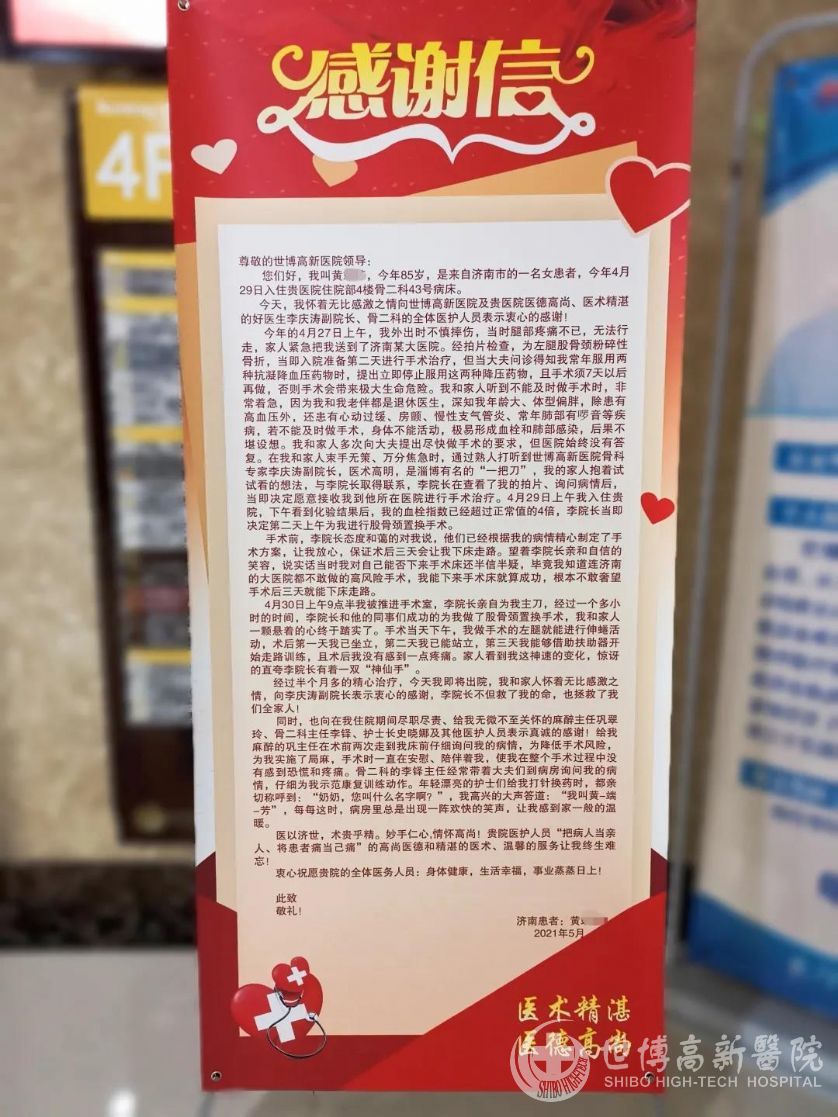 感谢信
4F
尊敬的世博高新医院领导：
您们好，我叫黄，今年85岁，是来自济南市的一名女患者，今年4月
29日入住贵医院住院部4楼骨二科43号病床。
今天，我怀着无比感激之情向世博高新医院及贵医院医德高尚、医术精湛
的好医生李庆涛副院长、骨二科的全体医护人员表示衷心的感谢！
今年的4月27日上午，我外出时不慎摔伤，当时腿部疼痛不已，无法行
走，家人紧急把我送到了济南某大医院。经拍片检查，为左腿股骨颈粉碎性
骨折，当即入院准备第二天进行手术治疗，但当大夫问诊得知我常年服用两
种抗凝降血压药物时，提出立即停止服用这两种降压药物，且手术须7天以后
再做，否则手术会带来极大生命危险。我和家人听到不能及时做手术时，非
常着急，因为我和我老伴都是退休医生，深知我年龄大、体型偏胖，除患有
高血压外，还患有心动过缓、房颤、慢性支气管炎、常年肺部有啰音等疾
病，若不能及时手术，身体不能活动，极易形成血栓和肺部感染，后果不
堪设想。我和家人多次向大夫提出尽快做手术的要求，但医院始终没有答
复。在我和家人束手无策、万分焦急时，通过熟人打听到世博高新医院骨科
专家李庆涛副院长，医术高明，是淄博有名的“一把刀”，我的家人抱着试
试看的想法，与李院长取得联系，李院长在查看了我的拍片、询问病情后，
当即决定愿意接收我到他所在医院进行手术治疗。4月29日上午我入住贵
院，下午看到化验结果后，我的血栓指数已经超过正常值的4倍，李院长当即
决定第二天上午为我进行股骨颈置换手术。
手术前，李院长态度和蔼的对我说，他们已经根据我的病情精心制定了手
术方案，让我放心，保证术后三天会让我下床走路。望着李院长亲和自信的
笑容，说实话当时我对自己能否下来手术床还半信半疑，毕竟我知道连济南
的大医院都不敢做的高风险手术，我能下来手术床就算成功，根本不敢奢望
手术后三天就能下床走路。
4月30日上午9点半我被推进手术室，李院长亲自为我主刀，经过一个多小
时的时间，李院长和他的同事们成功的为我做了股骨颈置换手术，我和家人
一颗悬着的心终于踏实了。手术当天下午，我做手术的左腿就能进行伸蜷活
动，术后第一天我已坐立，第二天我已能站立，第三天我能够借助扶助器开
始走路训练，且术后我没有感到一点疼痛。家人看到我这神速的变化，惊讶
的直夸李院长有着一双“神仙手”。
经过半个月多的精心治疗，今天我即将出院，我和家人怀着无比感激之
情，向李庆涛副院长表示衷心的感谢，李院长不但救了我的命，也拯救了我
们全家人！
同时，也向在我住院期间尽职尽责、给我无微不至关怀的麻醉主任巩翠
玲、骨二科主任李铎、护士长史晓娜及其他医护人员表示真诚的感谢！给我
麻醉的巩主任在术前两次走到我床前仔细询问我的病情，为降低手术风险，
为我实施了局麻，手术时一直在安慰、陪伴着我，使我在整个手术过程中没
有感到恐慌和疼痛。骨二科的李铎主任经常带着大夫们到病房询问我的病
情，仔细为我示范康复训练动作。年轻漂亮的护士们给我打针换药时，都亲
切称呼到：“奶奶，您叫什么名字啊？”，我高兴的大声答道：“我叫黄-端
-芳”，每每这时，病房里总是出现一阵欢快的笑声，让我感到家一般的温
暖。
医以济世，术贵乎精。妙手仁心，情怀高尚！贵院医护人员“把病人当亲
人、将患者痛当己痛”的高尚医德和精湛的医术、温馨的服务让我终生难
忘！
衷心祝愿贵院的全体医务人员：身体健康，生活幸福，事业蒸蒸日上！
此致
敬礼！
济南患者：黄
2021年5月
医术精湛
医德高尚
世博高新醫院
SHIBO HIGH-TECH HOSPITAL
SHIBO HIGH-TECH